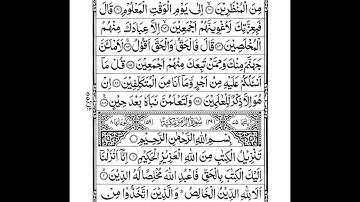 مِنَ الْمُنْظَرِيْنَ ۙ اِلٰى يَوْمِ الْوَقْتِ الْمَعْلُوْمِ ۝ قَالَ
فَبِعِزَّتِكَ لَاُغْوِيَنَّهُمْ اَجْمَعِيْنَ ۙ اِلَّا عِبَادَكَ مِنْهُمُ
الْمُخْلَصِيْنَ ۝ قَالَ فَالْحَقُّ وَالْحَقَّ اَقُوْلُ ۚ لَاَمْلَئَنَّ
جَهَنَّمَ مِنْكَ وَمِمَّنْ تَبِعَكَ مِنْهُمْ اَجْمَعِيْنَ ۝ قُلْ مَاۤ
اَسْئَلُكُمْ عَلَيْهِ مِنْ اَجْرٍ وَّمَاۤ اَنَا مِنَ الْمُتَكَلِّفِيْنَ ۝ اِنْ
هُوَ اِلَّا ذِكْرٌ لِّلْعٰلَمِيْنَ ۝ وَلَتَعْلَمُنَّ نَبَاَهٗ بَعْدَ حِيْنٍ ۝
سُوْرَةُ الزُّمَرِ مَكِّيَّةٌ
بِسْمِ اللّٰهِ الرَّحْمٰنِ الرَّحِيْمِ
تَنْزِيْلُ الْكِتٰبِ مِنَ اللّٰهِ الْعَزِيْزِ الْحَكِيْمِ ۝ اِنَّاۤ اَنْزَلْنَاۤ
اِلَيْكَ الْكِتٰبَ بِالْحَقِّ فَاعْبُدِ اللّٰهَ مُخْلِصًا لَّهُ الدِّيْنَ ۝
اَلَا لِلّٰهِ الدِّيْنُ الْخَالِصُ ؕ وَالَّذِيْنَ اتَّخَذُوْا مِنْ